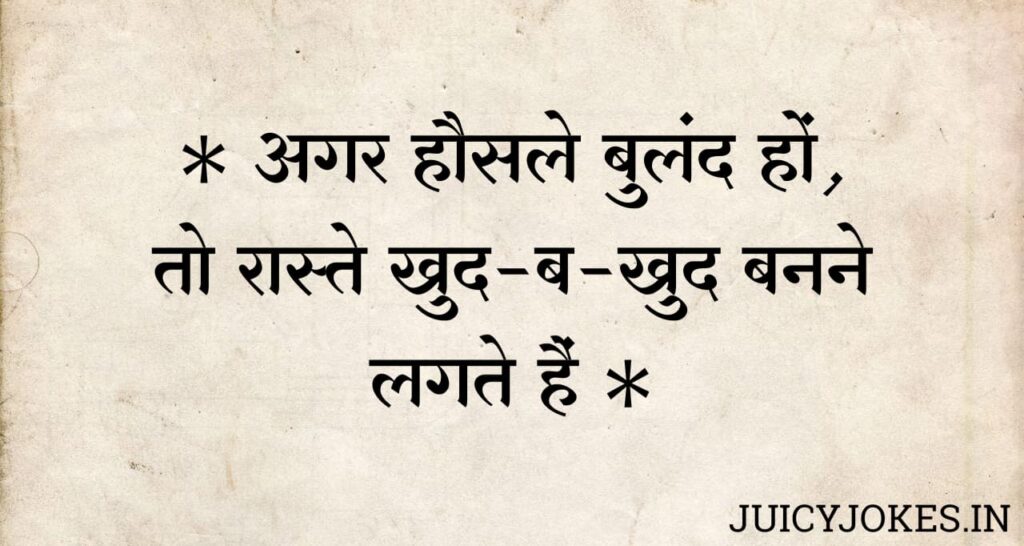 * अगर हौसले बुलंद हों,
तो रास्ते खुद-ब-खुद बनने
लगते हैं *
JUICYJOKES.IN